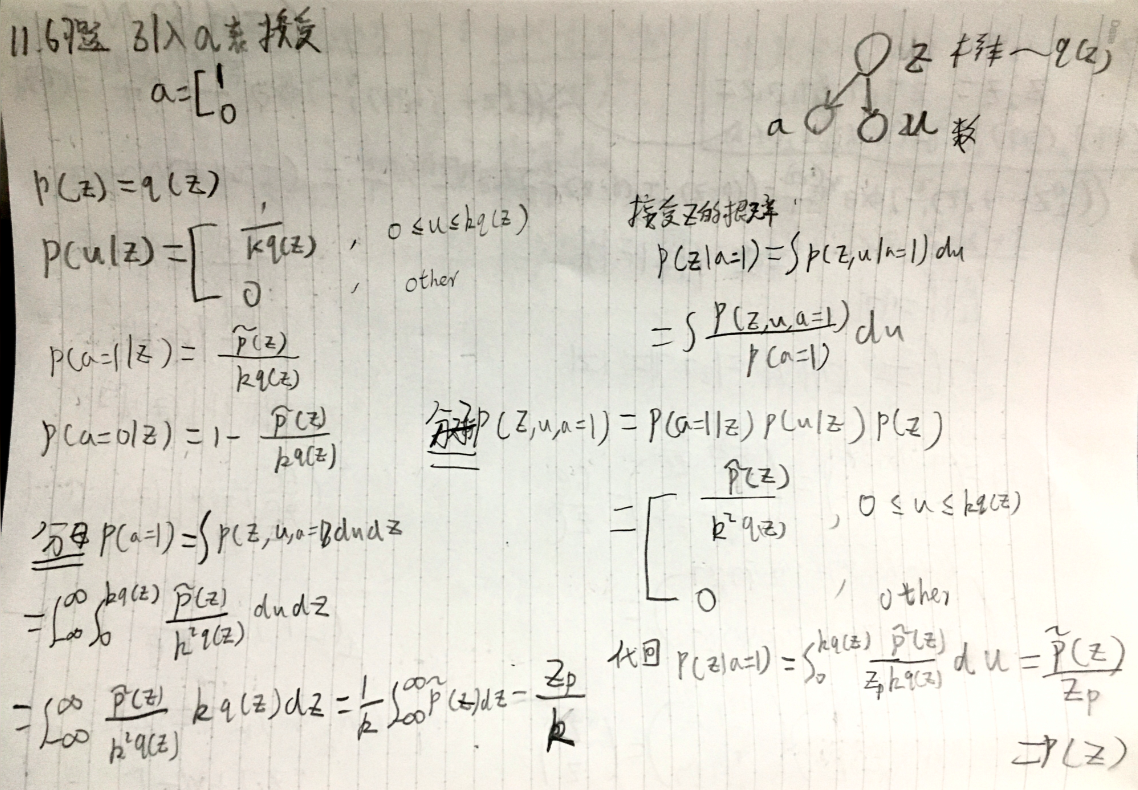 11.6题 引入a表接受
a=[1
0
z 样 ~q(z)
a u 数
p(z)=q(z)
p(u|z)=[ 1/kq(z) , 0≤u≤kq(z)
0 , other
p(a=1|z)= p̃(z)/kq(z)
p(a=0|z)=1- p̃(z)/kq(z)
分母 p(a=1)=∫p(z,u,a=1)dudz
=∫_{-∞}^{∞}∫_0^{kq(z)} p̃(z)/k²q(z) dudz
=∫_{-∞}^{∞} p̃(z)/k²q(z) kq(z)dz=1/k ∫_{-∞}^{∞} p̃(z)dz=Zp/k
接受z的概率:
p(z|a=1)=∫p(z,u|a=1)du
=∫ p(z,u,a=1)/p(a=1) du
p(z,u,a=1)=p(a=1|z)p(u|z)p(z)
=[ p̃(z)/k²q(z) , 0≤u≤kq(z)
0 , other
代回 p(z|a=1)=∫_0^{kq(z)} p̃(z)/Zpkq(z) du=p̃(z)/Zp
=p(z)